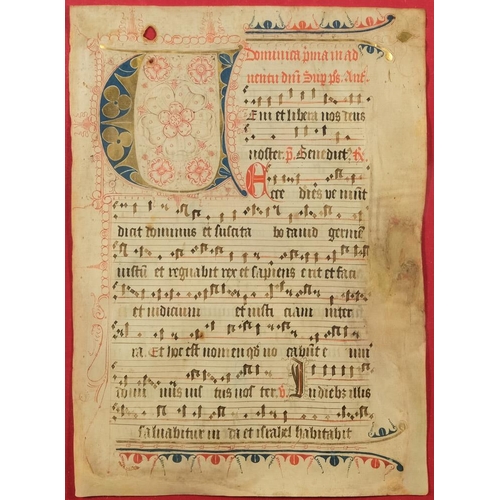 Dominica p̄ma in ad
ventu dn̄i Sup̄ ps̄. Añ.
Veni et libera nos deus
noster. p̄. Benedict⁹. R̄.
Ecce dies veniunt
dicit dominus et suscitabo david germē
iustū et regnabit rex et sapiens erit et faci
et iudicium et iusticiam in terra
ra. Et hoc est nomen qd̄ vocabunt eum
domi nus ius tus nos ter. v̄. In dieb⁹ illis
salvabitur iuda et israhel habitabit